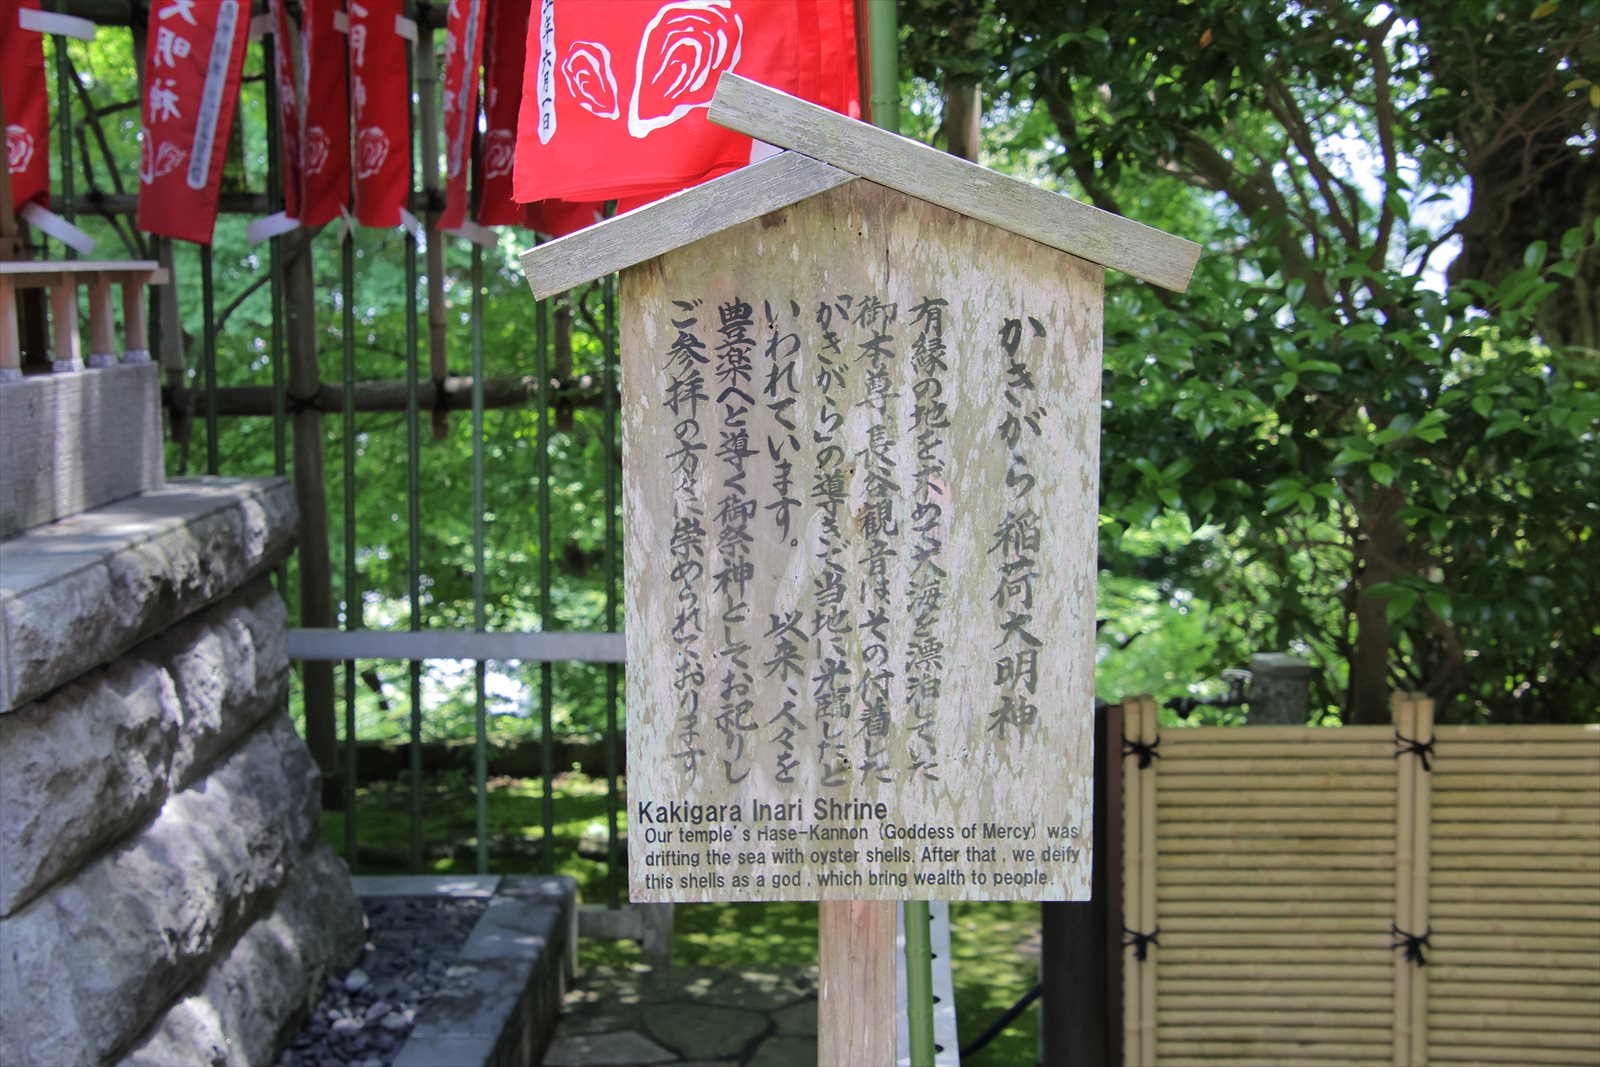 かきがら稲荷大明神
有縁の地を求めて大海を漂泊していた
御本尊、長谷観音はその付着した
「かきがら」の導きで当地に光臨したと
いわれています。 以来、人々を
豊楽へと導く御祭神としてお祀りし
ご参拝の方々に崇められております
Kakigara Inari Shrine
Our temple's Hase-Kannon (Goddess of Mercy) was
drifting the sea with oyster shells. After that , we deify
this shells as a god , which bring wealth to people.
大明神
明神
年六月八日